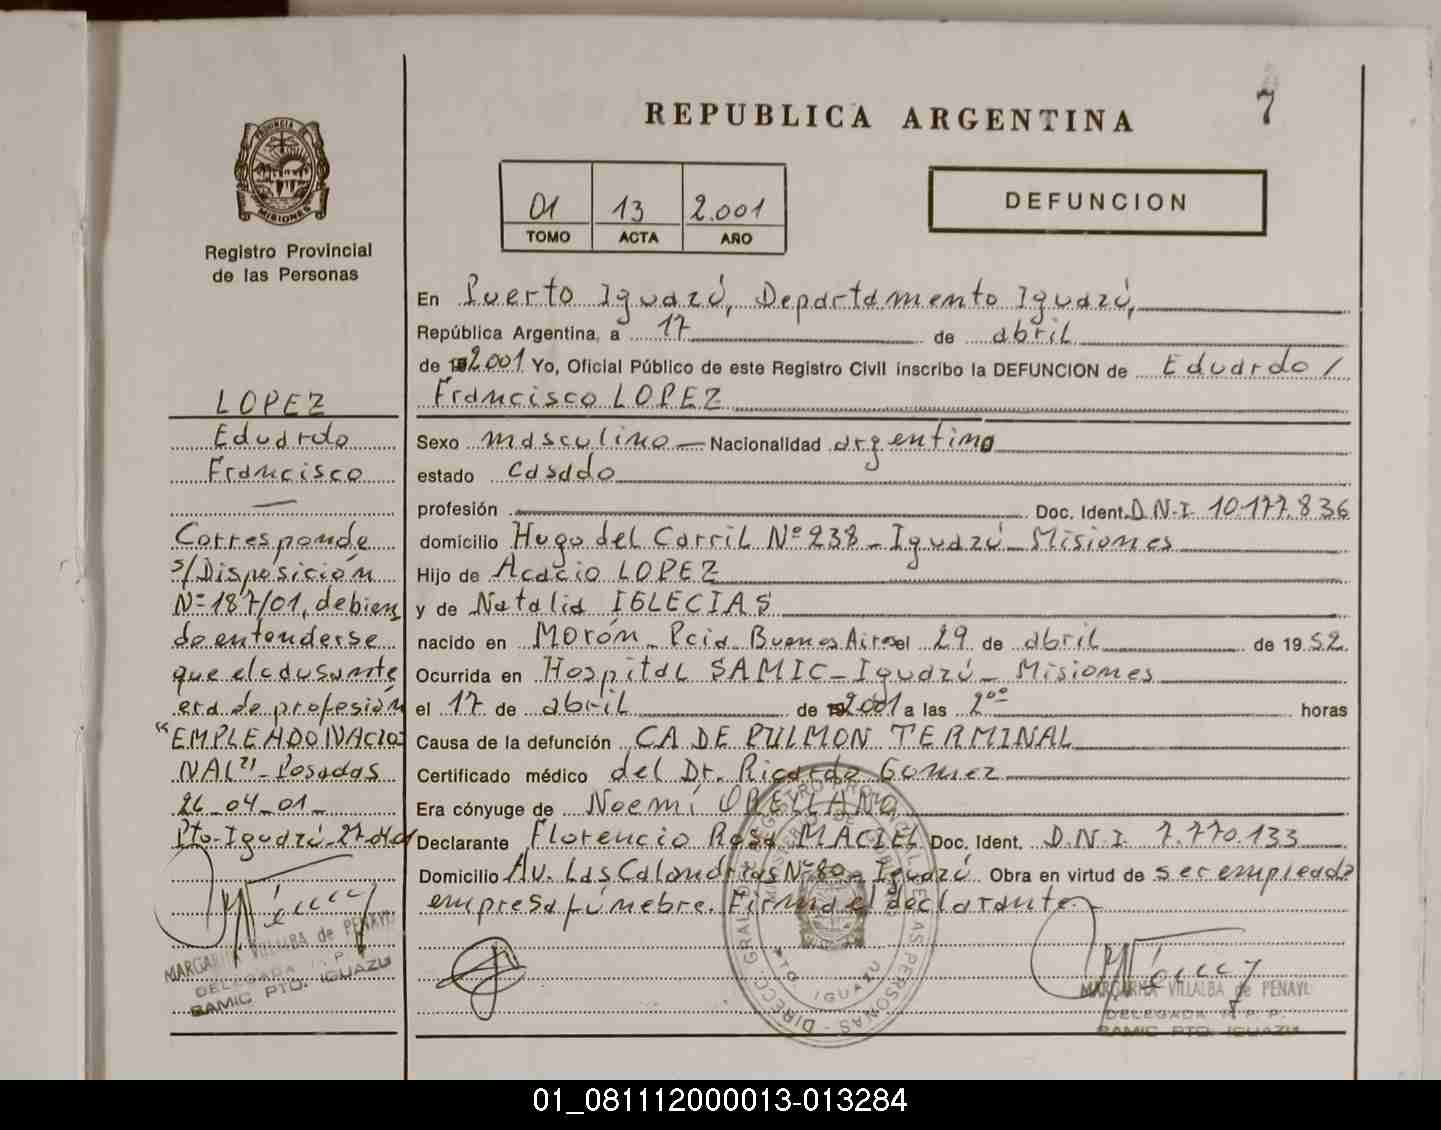 7
REPUBLICA ARGENTINA
PROVINCIA DE
MISIONES
Registro Provincial
de las Personas
01 13 2.001
TOMO ACTA AÑO
DEFUNCION
En Puerto Iguazú, Departamento Iguazú,
República Argentina, a 17 de abril
de 192.001 Yo, Oficial Público de este Registro Civil inscribo la DEFUNCION de Eduardo /
Francisco LOPEZ
Sexo masculino Nacionalidad argentina
estado casado
profesión Doc. Ident. D.N.I. 10.177.836
domicilio Hugo del Carril Nº 238 - Iguazú - Misiones
Hijo de Acacio LOPEZ
y de Natalia IGLECIAS
nacido en Morón - Pcia Buenos Aires el 29 de abril de 1952.
Ocurrida en Hospital SAMIC - Iguazú - Misiones
el 17 de abril de 192001 a las 2ºº horas
Causa de la defunción CA DE PULMON TERMINAL
Certificado médico del Dr. Ricardo Gomez
Era cónyuge de Noemí ORELLANO
Declarante Florencio Rosa MACIEL Doc. Ident. D.N.I. 7.770.133
Domicilio Av. Las Calandrias Nº 80 - Iguazú Obra en virtud de ser empleado
empresa fúnebre. Firma el declarante.
LOPEZ
Eduardo
Francisco
Corresponde
s/Disposición
Nº 187/01, debien
do entenderse
que el causante
era de profesión
"EMPLEADO NACIO
NAL" - Posadas
26-04-01-
Pto-Iguazú-27-04-01
MARGARITA VILLALBA de PENAYO
DELEGADA R. P. P.
SAMIC PTO. IGUAZU
DIRECC. GRAL. DE REGISTRO PROVINCIAL DE LAS PERSONAS
PTO. IGUAZU
MARGARITA VILLALBA de PENAYO
DELEGADA R. P. P.
SAMIC PTO. IGUAZU
01_081112000013-013284